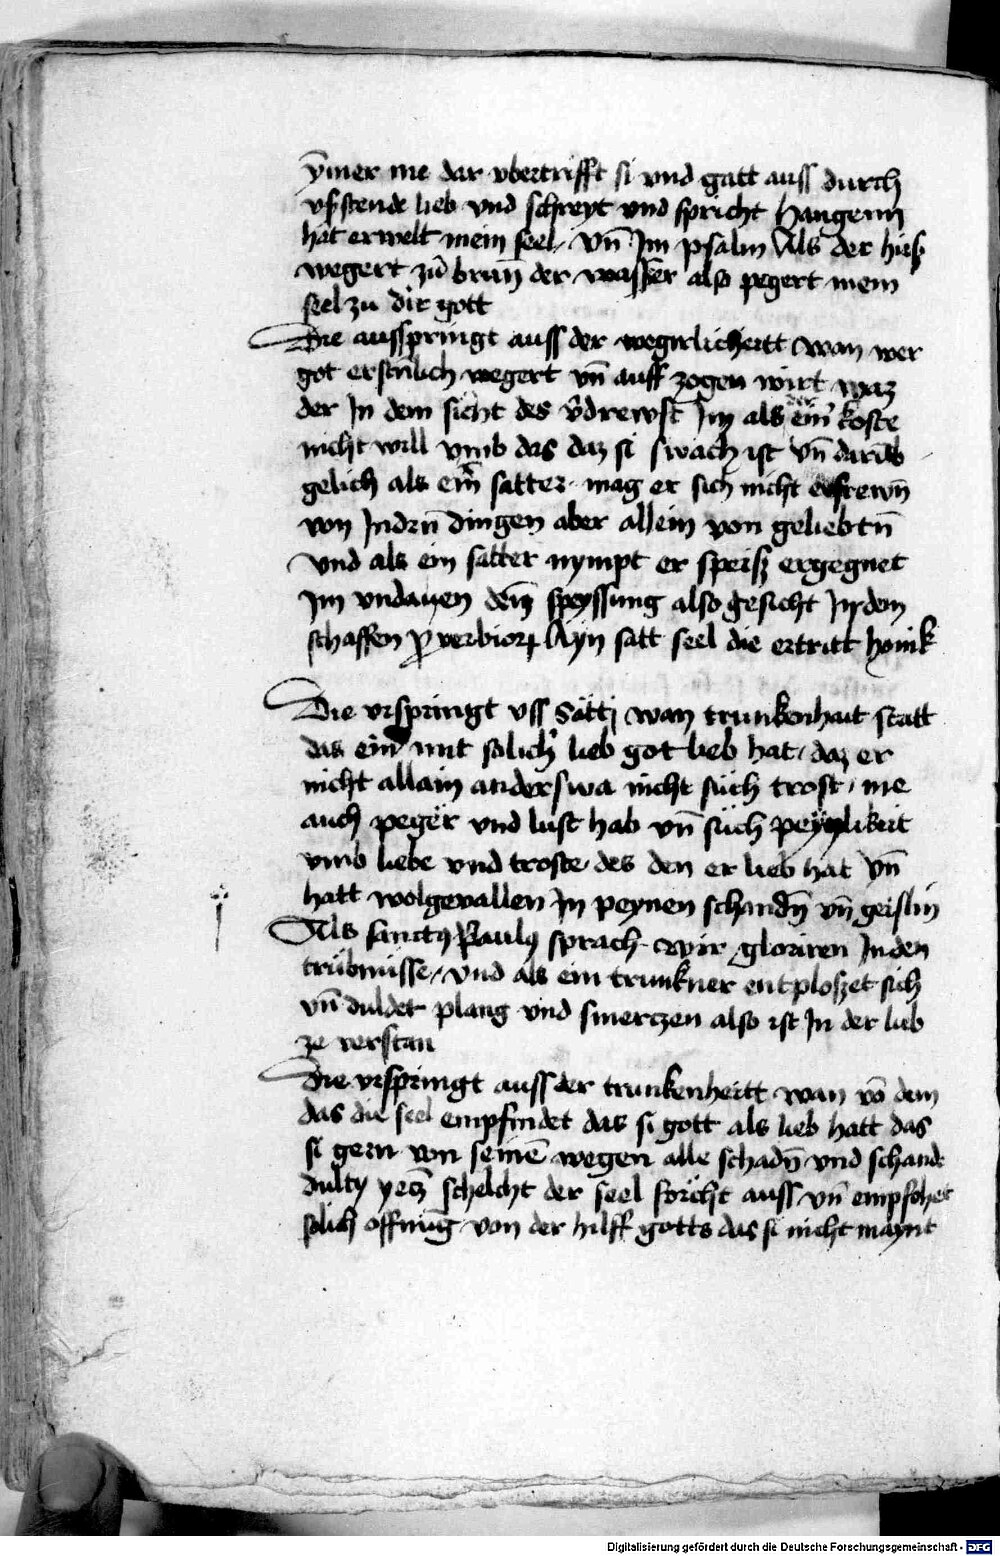 ÿmer me dar vbertrifft si vnd gatt auss durch
vfstende lieb vnd schreyt vnd spricht Hangenn
hat erwelt mein seel / Vn̄ Im psalm Als der hirß
wegert zu brun̄ der wasser also pegert mein
seel zu dir gott
Die ausspringt auss der wegirlicheitt wan wer
got wegert vn̄ auff zogen wirt waz
der In dem sicht des Im als ein koste
nicht will vmb das daz si swach ist vn̄ darūb
gelich als ein satter mag er sich nicht erfrewn̄
von Indrn̄ dingen aber allein von geliebtn̄
vnd als ein satter nympt er speisz ergegnet
Im vndauen dem speyssung also gesicht In dem
schaffen ꝓverbiorꝝ Ayn satt seel die ertritt honik
Die vrspringt vss sätti wan trunkenhait statt
das ein mit solich lieb got lieb hat / daz er
nicht allain anderswa nicht such trost / me
auch peger vnd lust hab vn̄ such peynlikeit
vmb liebe vnd troste des den er lieb hat vn̄
hatt wolgevallen In peynen schandn̄ vn̄ geislin
Als sanctꝰ Paulꝰ sprach wir gloriren In den
trübnüsse / vnd als ein trunkner entploszet sich
vn̄ duldet plang vnd smerczen also ist In der lieb
ze verstan
Die vrspringt auss der trunkenheitt wan vō dem
das die seel empfindet das si gott als lieb hatt das
si gern von seinē wegen alle schadn̄ vnd schande
dulty yecz schelcht der seel forcht auss vn̄ empfohet
solich offnūg von der hilff gotts das si nicht maynt
Digitalisierung gefördert durch die Deutsche Forschungsgemeinschaft - DFG